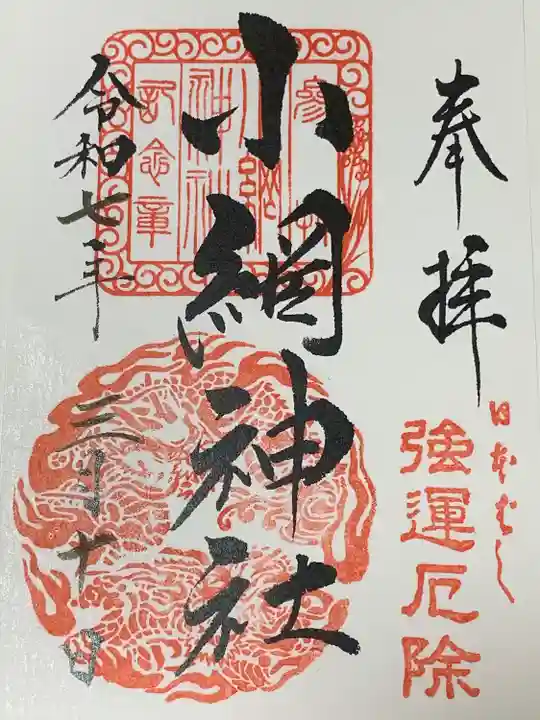 奉拝
日本ばし
強運厄除
小網神社
参拝
小網
神社
記念章
令和七年
三月十日